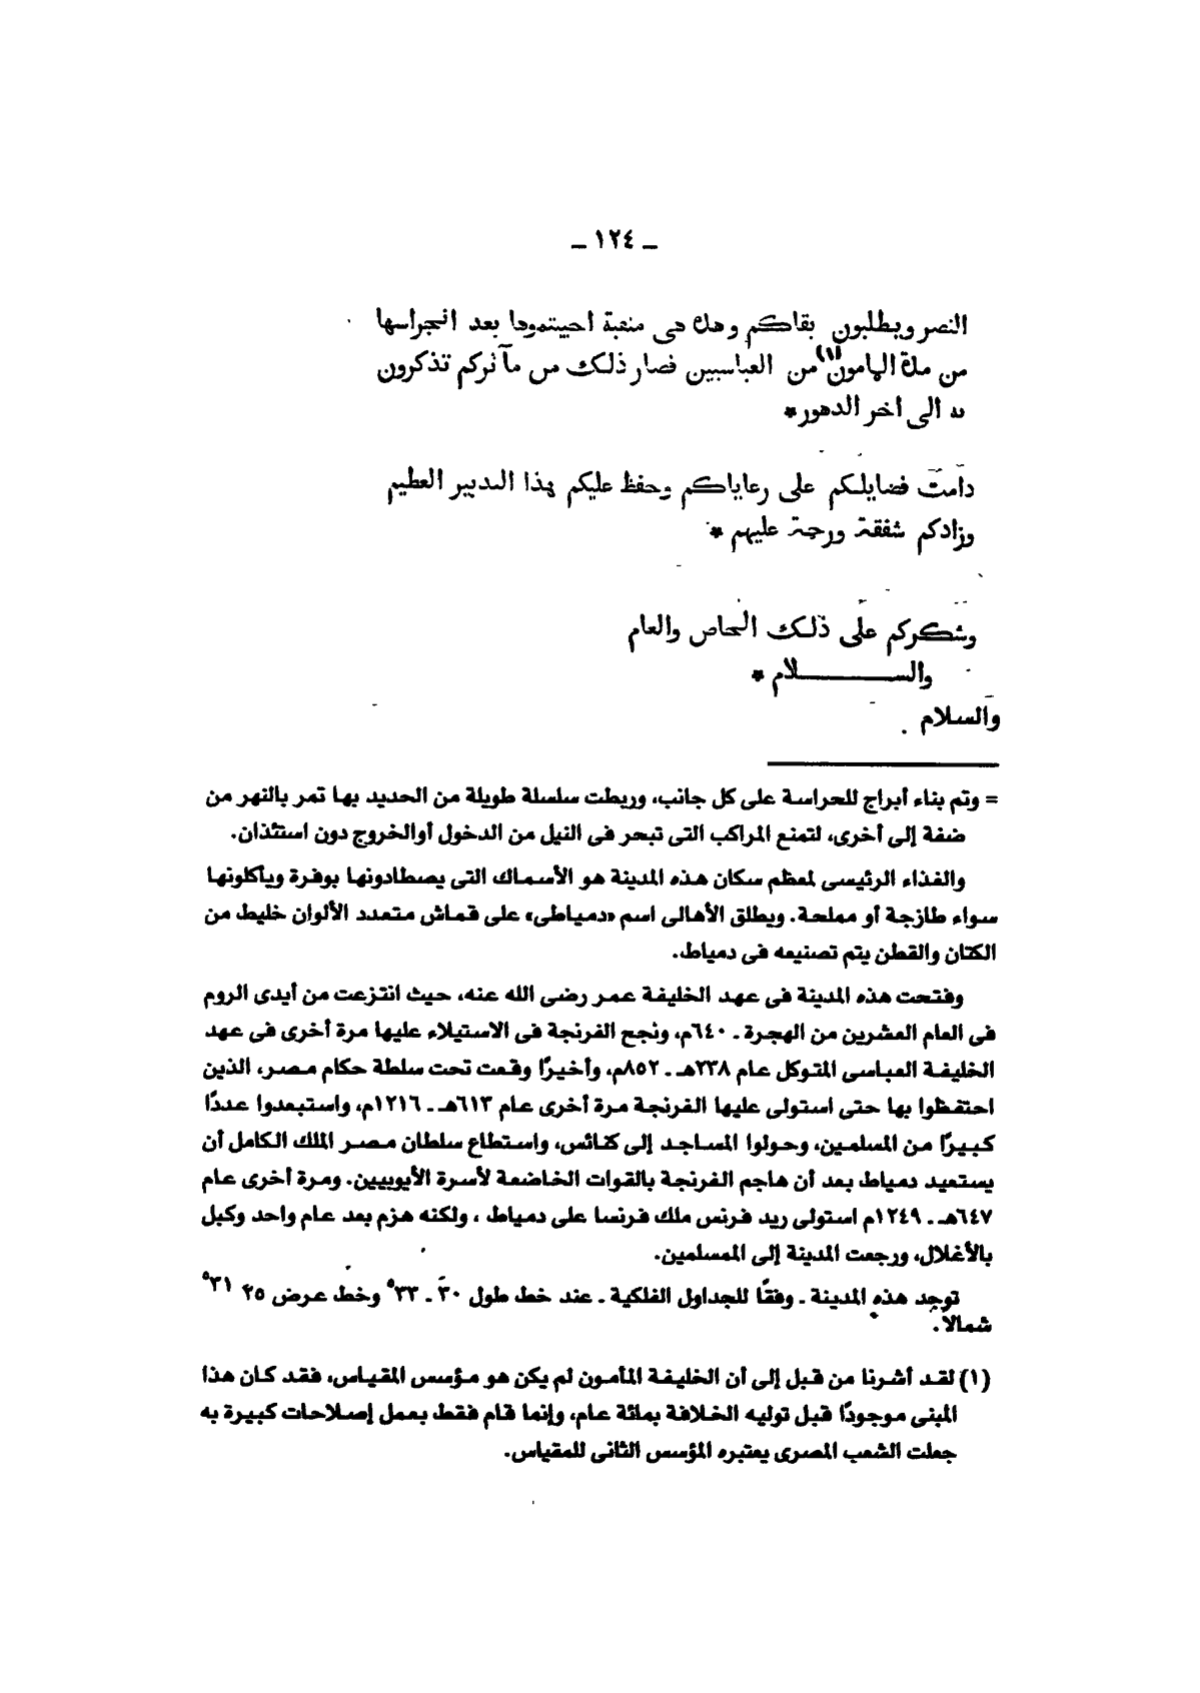 ـ ١٢٤ ـ
النصر ويطلبون بقاكم وهذه هى منقبة احييتموها بعد انجراسها
من مدة المامون(١) من العباسيين فصار ذلك من مآثركم تذكرون
به الى اخر الدهور *
دامت فضايلكم على رعاياكم وحفظ عليكم بهذا التدبير العظيم
وزادكم شفقة ورحمة عليهم *
وشكركم على ذلك الخاص والعام
والســـــــــلام *
والسلام .
= وتم بناء أبراج للحراسة على كل جانب، وربطت سلسلة طويلة من الحديد بها تمر بالنهر من
ضفة إلى أخرى، لتمنع المراكب التى تبحر فى النيل من الدخول أوالخروج دون استئذان.
والغذاء الرئيسى لمعظم سكان هذه المدينة هو الأسماك التى يصطادونها بوفرة ويأكلونها
سواء طازجة أو مملحة. ويطلق الأهالى اسم «دمياطى» على قماش متعدد الألوان خليط من
الكتان والقطن يتم تصنيعه فى دمياط.
وفتحت هذه المدينة فى عهد الخليفة عمر رضى الله عنه، حيث انتزعت من أيدى الروم
فى العام العشرين من الهجرة ـ ٦٤٠م، ونجح الفرنجة فى الاستيلاء عليها مرة أخرى فى عهد
الخليفة العباسى المتوكل عام ٢٣٨هـ ـ ٨٥٢م، وأخيرًا وقعت تحت سلطة حكام مصر، الذين
احتفظوا بها حتى استولى عليها الفرنجة مرة أخرى عام ٦١٣هـ ـ ١٢١٦م، واستبعدوا عددًا
كبيرًا من المسلمين، وحولوا المساجد إلى كنائس، واستطاع سلطان مصر الملك الكامل أن
يستعيد دمياط بعد أن هاجم الفرنجة بالقوات الخاضعة لأسرة الأيوبيين. ومرة أخرى عام
٦٤٧هـ ـ ١٢٤٩م استولى ريد فرنس ملك فرنسا على دمياط ، ولكنه هزم بعد عام واحد وكبل
بالأغلال، ورجعت المدينة إلى المسلمين.
توجد هذه المدينة ـ وفقًا للجداول الفلكية ـ عند خط طول ٣٠َ ـ ٣٣° وخط عرض ٢٥ ٣١°
شمالاً.
(١) لقد أشرنا من قبل إلى أن الخليفة المأمون لم يكن هو مؤسس المقياس، فقد كان هذا
المبنى موجودًا قبل توليه الخلافة بمائة عام، وإنما قام فقط بعمل إصلاحات كبيرة به
جعلت الشعب المصرى يعتبره المؤسس الثانى للمقياس.